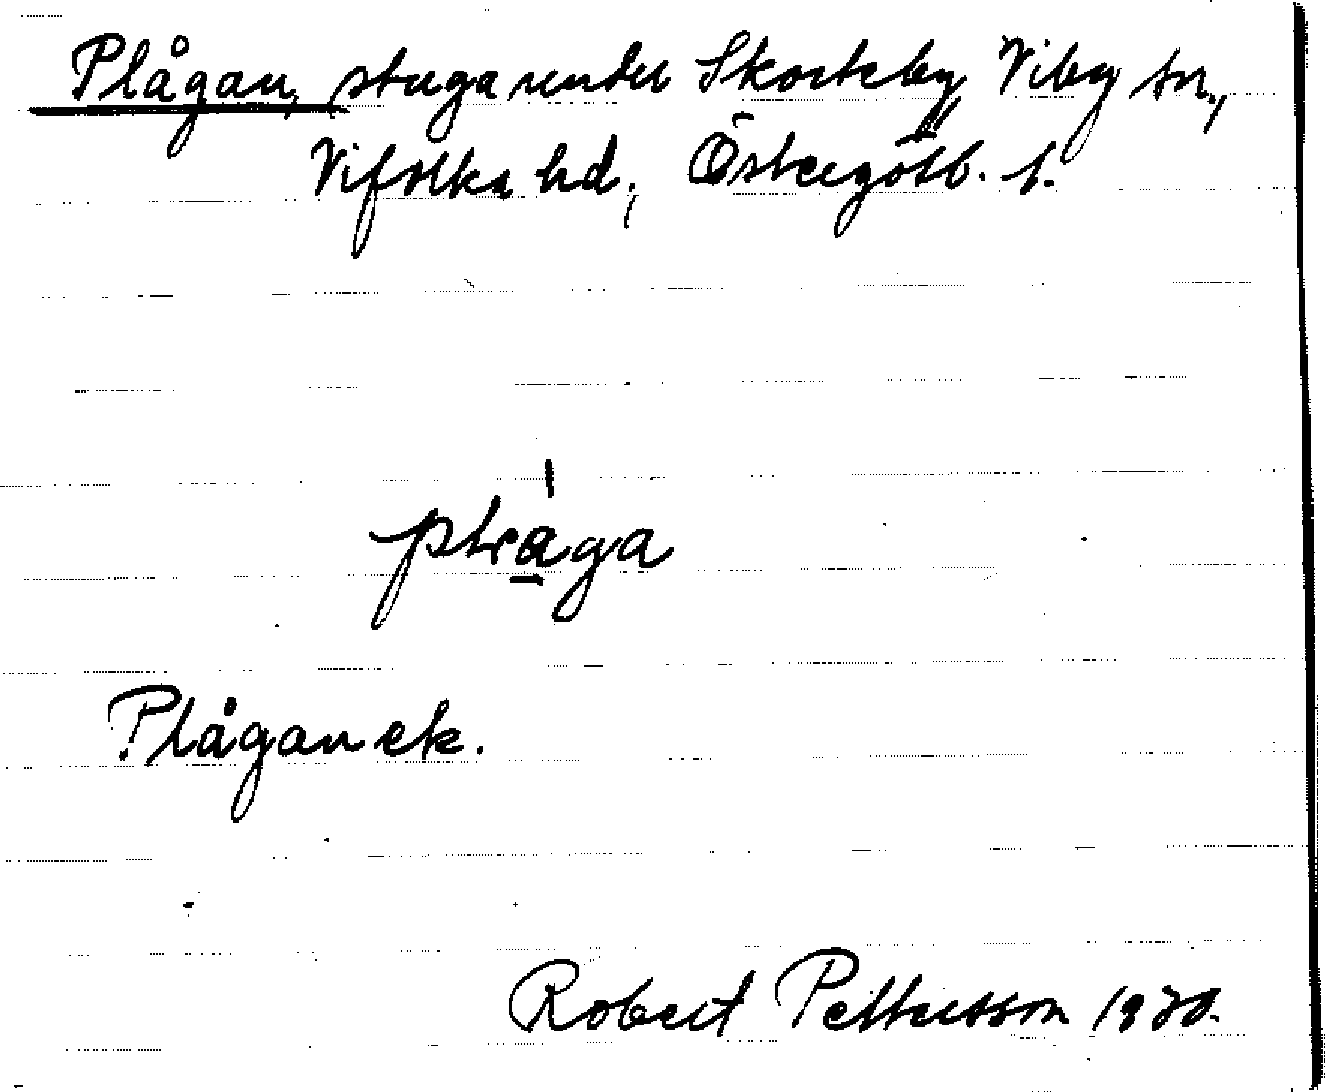 Plågan, stuga under Skorteby Viby sn.,
Vifolka hd, Östergötl. l.
plråga
Plågan ek.
Robert Pettersson 1930.